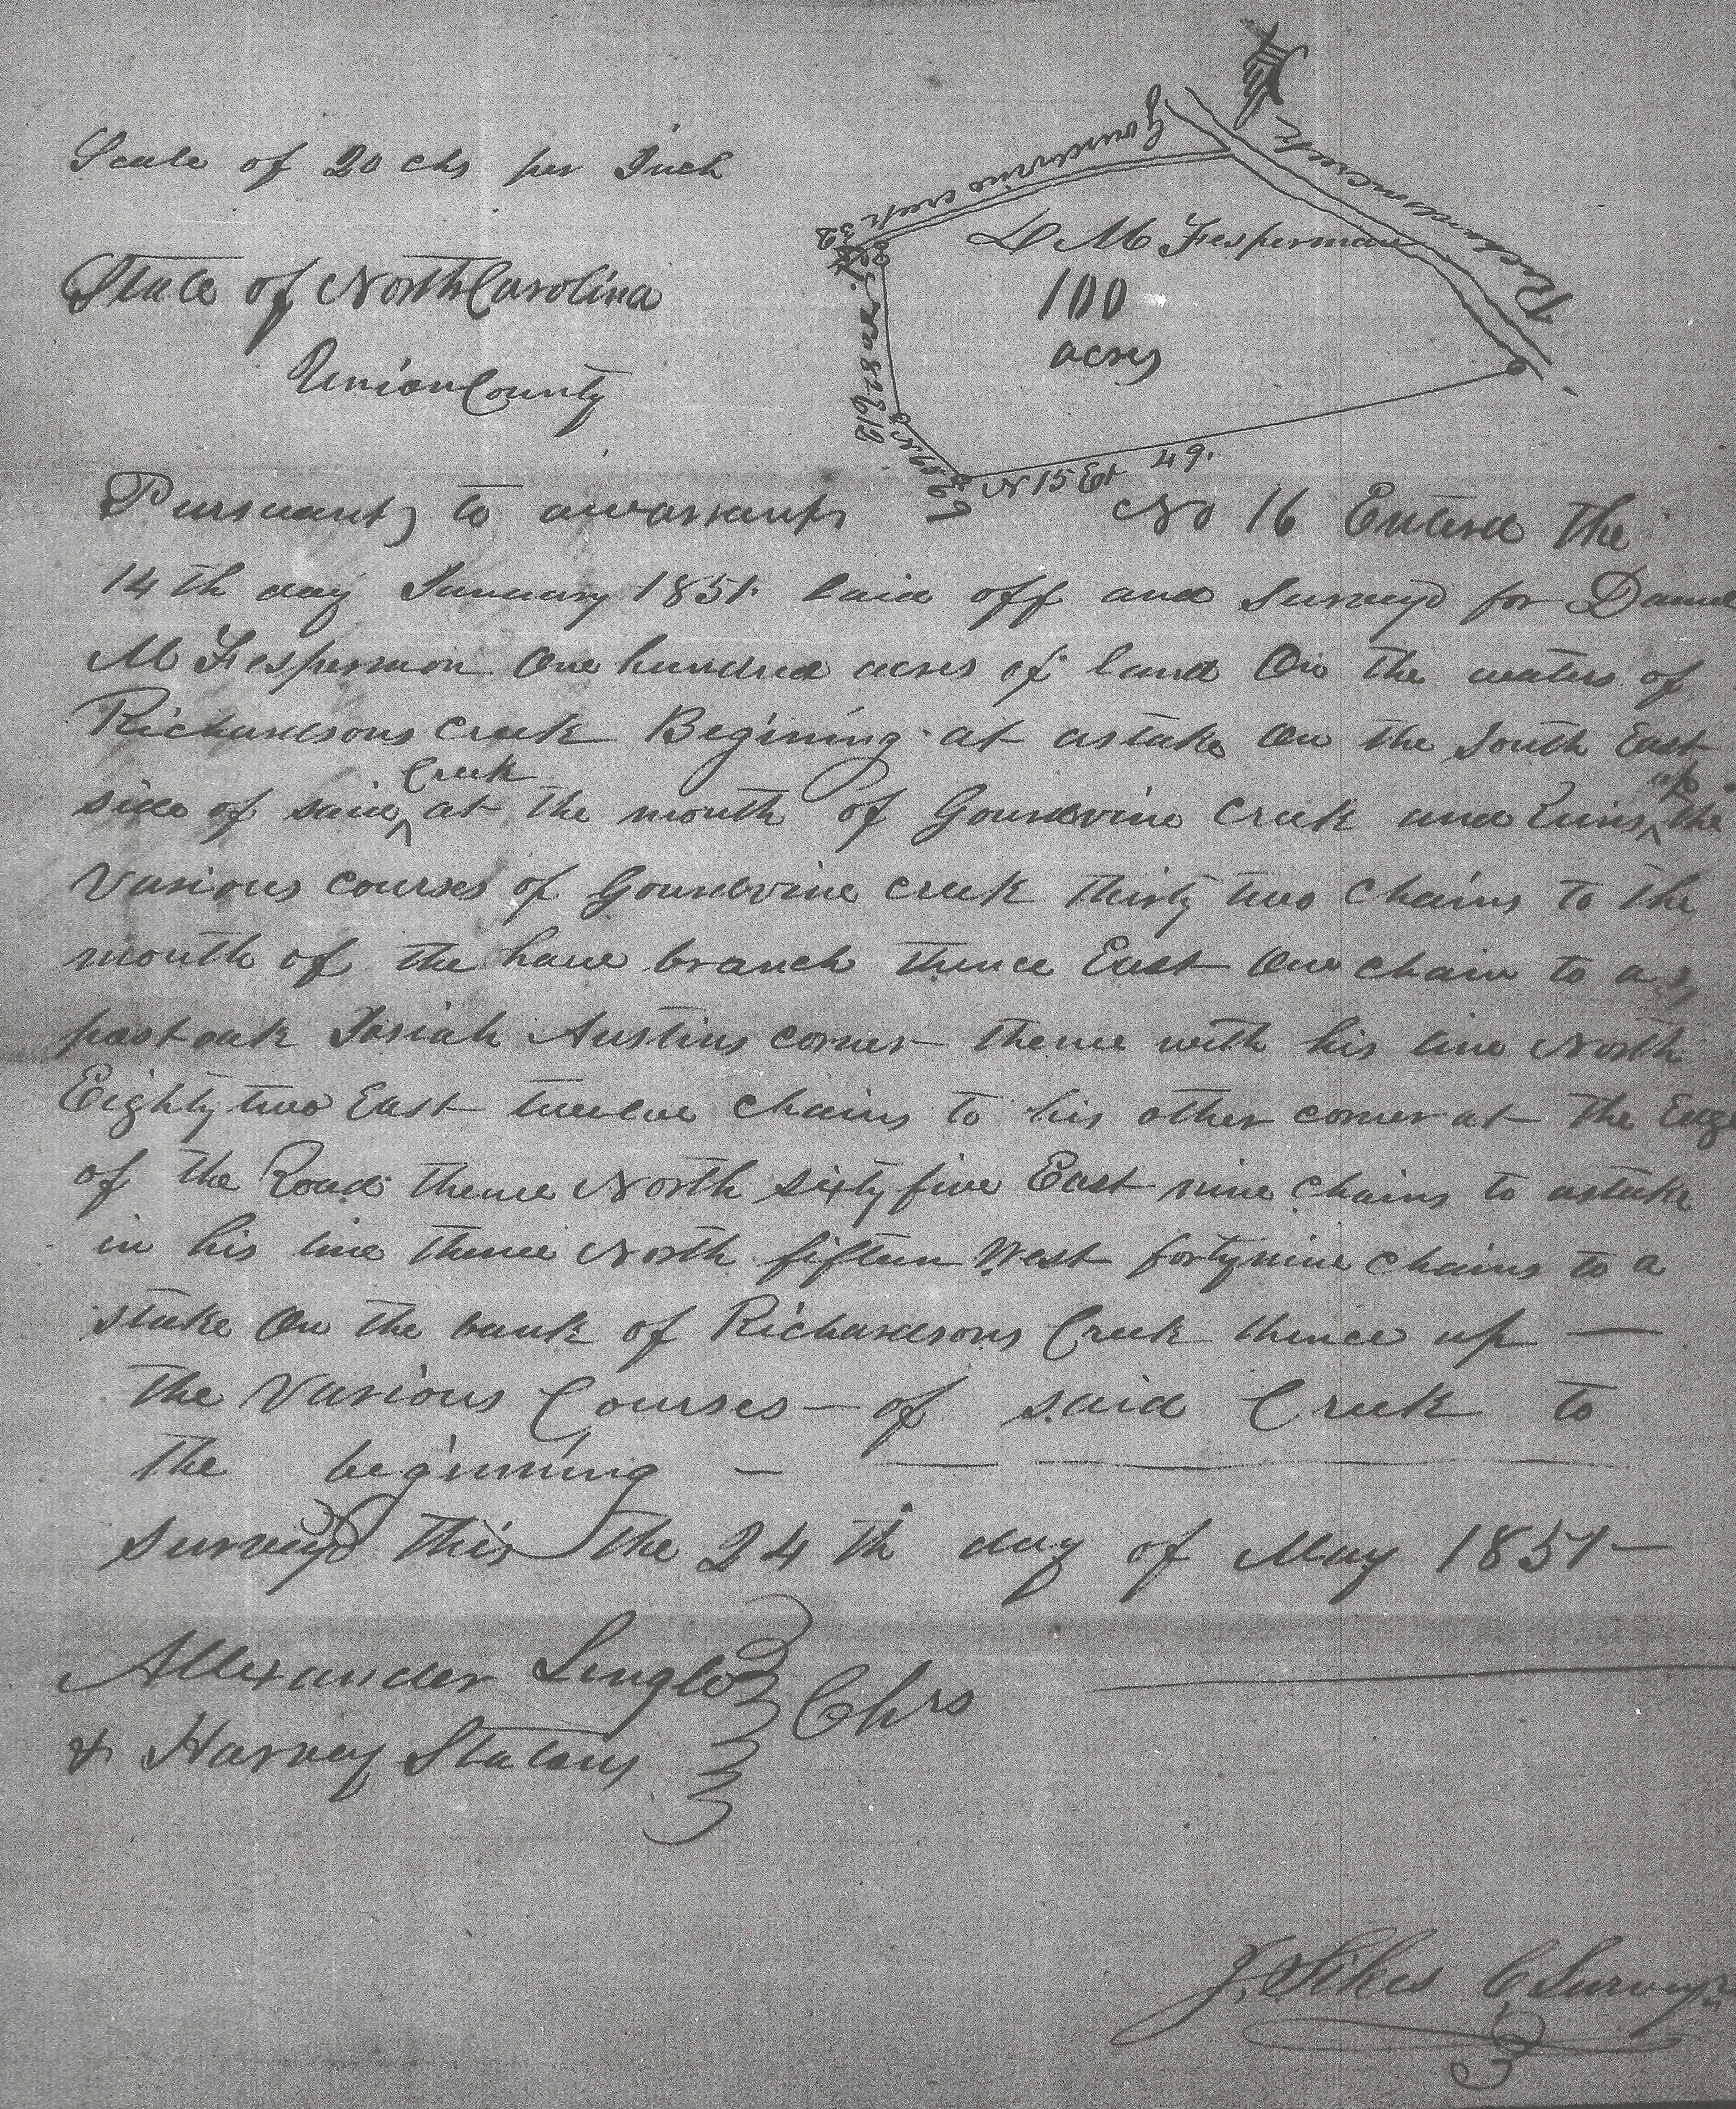 Scale of 20 chs per Inch
Gourdvine creek 32
Richardsons creek
D M Fesperman
100
acres
N 82 E 12
N 65 E 9
N 15 Et 49.
State of North Carolina
Union County
Pursuant, to a warrant No 16 Enterd the
14th day January 1851. laid off and Surveyd for Daniel
M Fesperman One hundred acres of land On the waters of
Richardsons creek Begining at a stake On the South East
side of said Creek at the mouth of Gourdvine creek and Runs up the
various courses of Gourdvine creek thirty two chains to the
mouth of the branch thence East One chain to a
post oak Josiah Austins corner thence with his line North
Eighty two East twelve chains to his other corner at the Edge
of the Road thence North sixty five East nine chains to a stake
in his line thence North fifteen West forty nine chains to a
stake On the bank of Richardsons Creek thence up —
the Various Courses — of said Creek to
the begining —
surveyd this the 24th day of May 1851 —
Allexander
& Harvey Statons
Chrs
J. Sikes C Survey